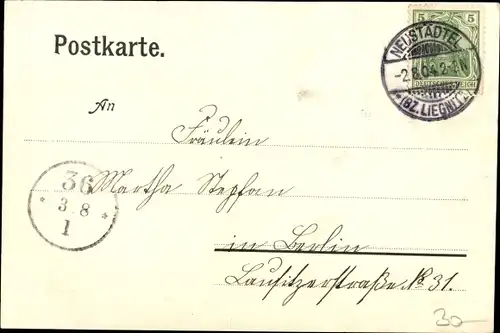 Postkarte.
5 5
DEUTSCHES REICH
NEUSTÄDTEL
-2.8.04. 2-3N.
*(BZ. LIEGNITZ)*
An
Fräulein
Martha Stephan
in Berlin
Lausitzerstraße No 31.
36
* 3. 8 *
1
30-